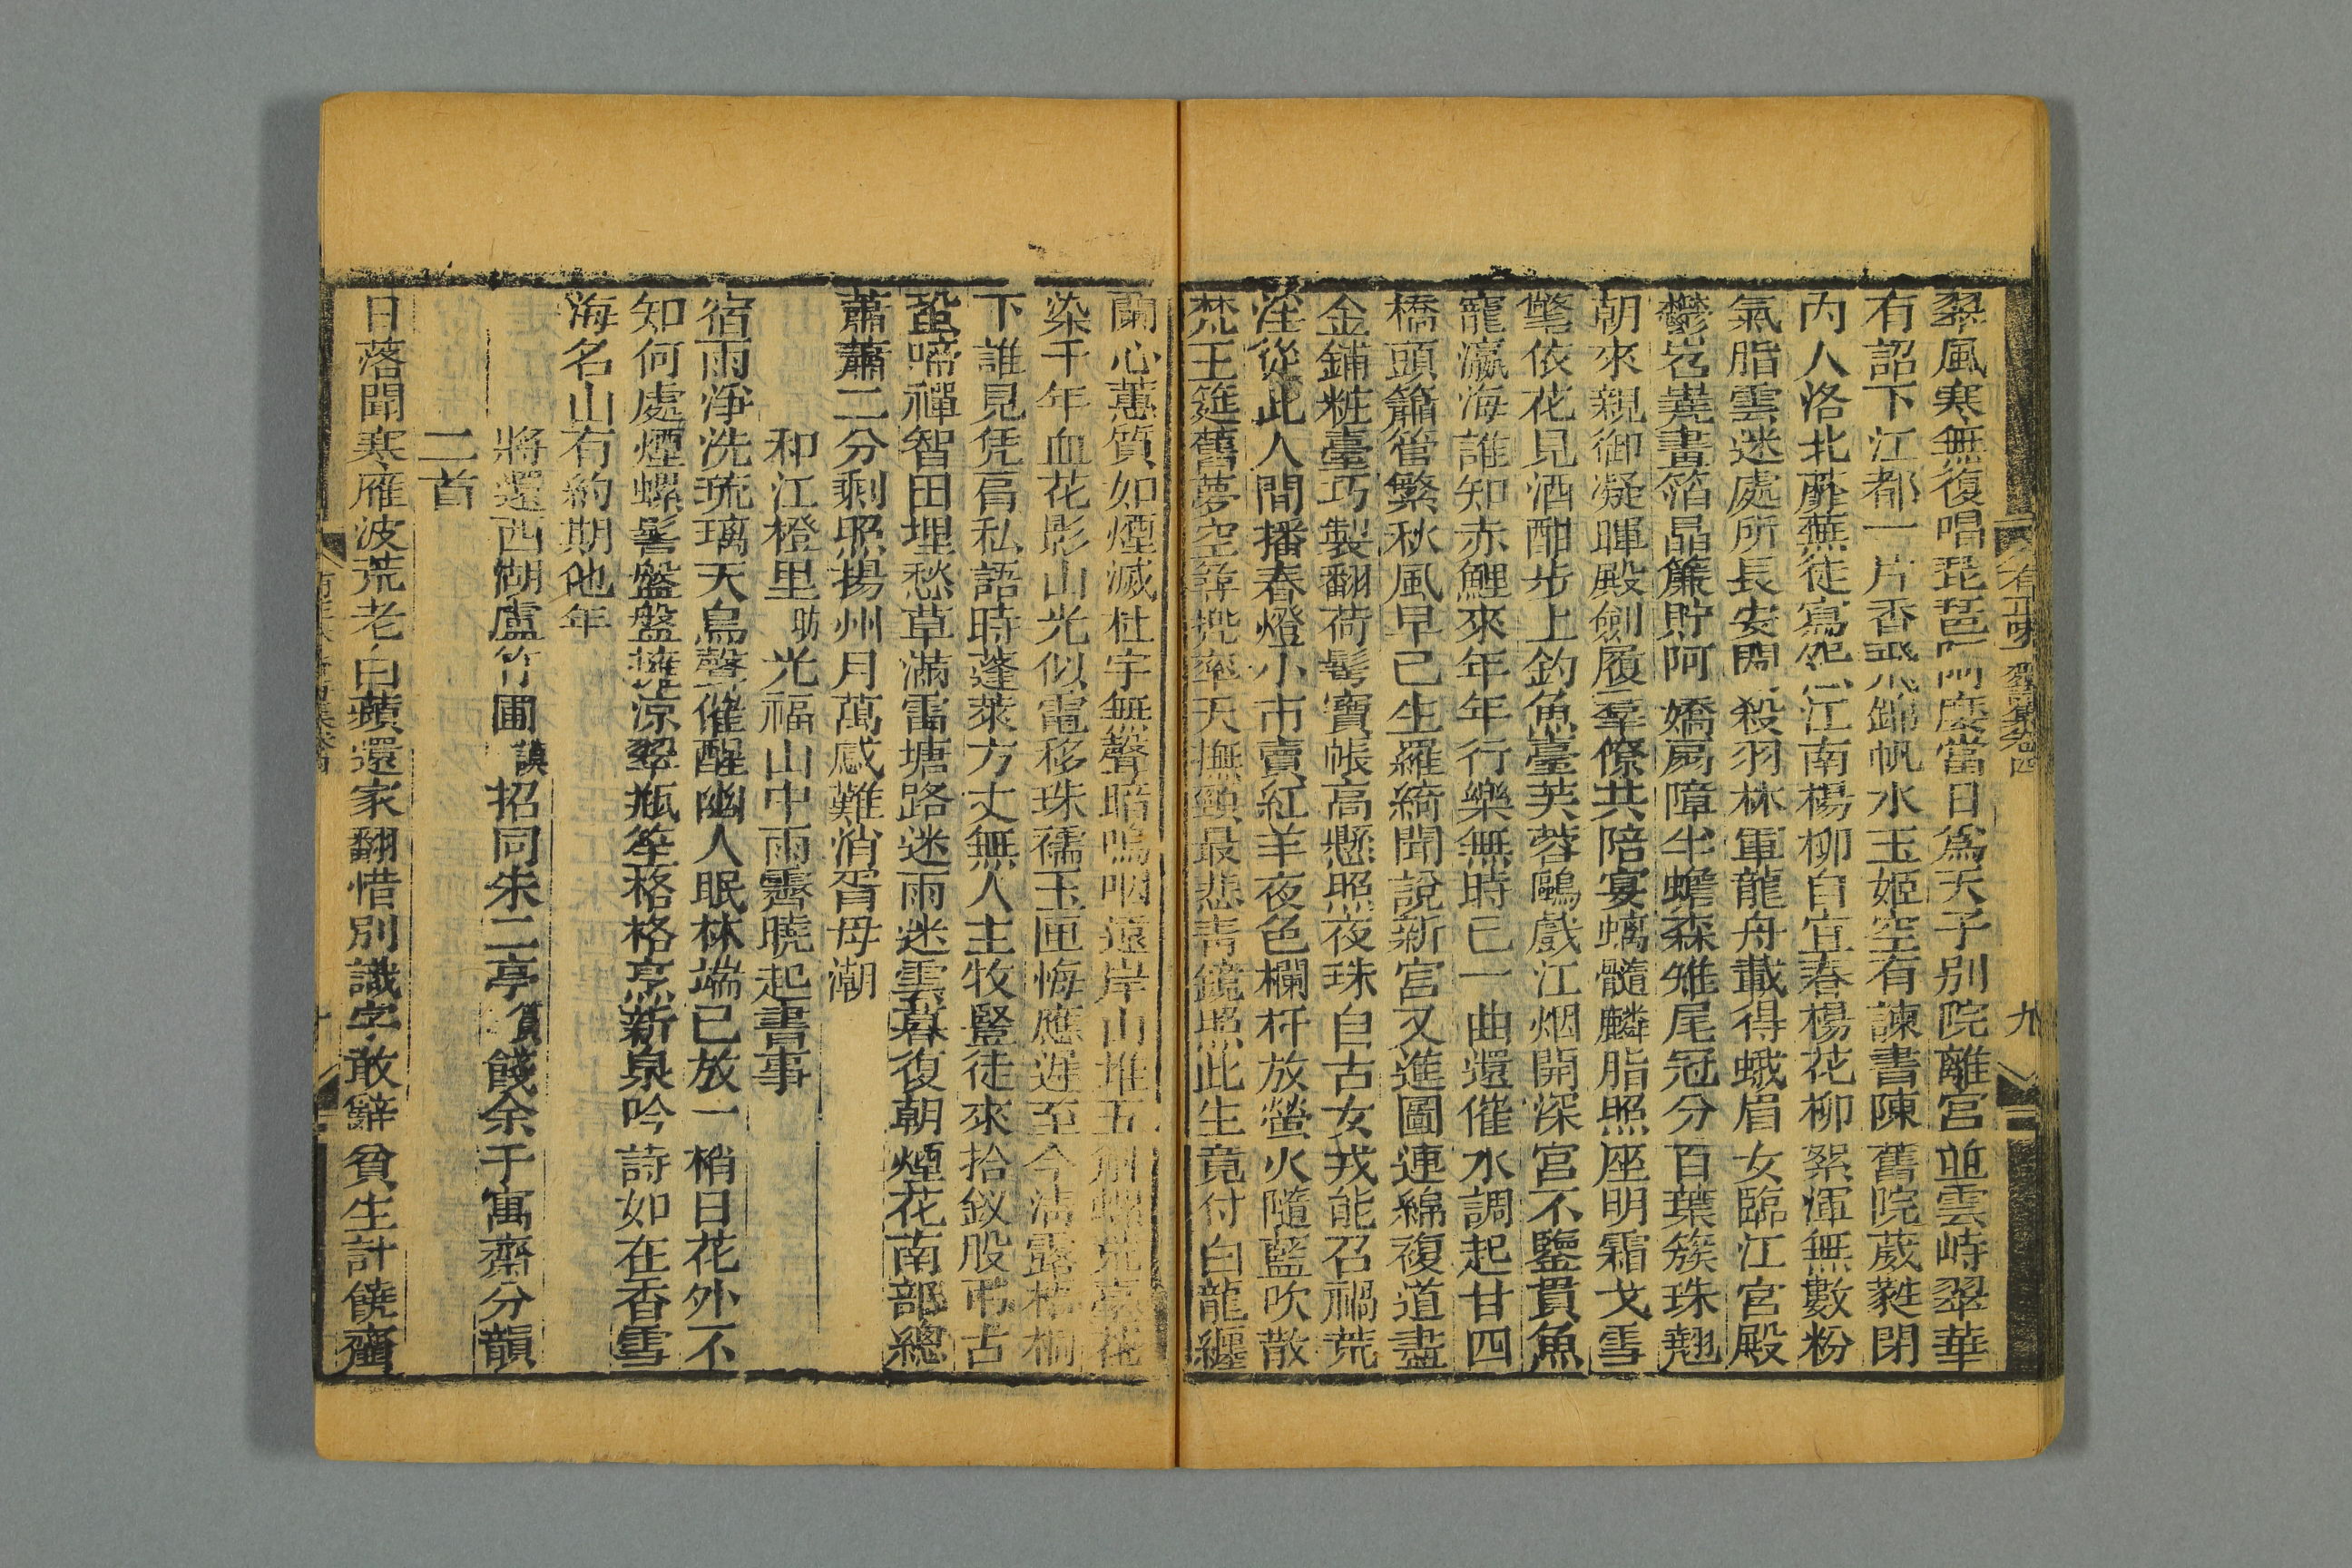 翠風寒無復唱琵琶阿㦄當日為天子別院離宮並雲峙翠華
有詔下江都一片香飛錦帆水玉姬空有諫書陳舊院葳蕤閉
內人洛北蘼蕪徒寫怨江南楊柳自宜春楊花柳絮渾無數粉
氣脂雲迷處所長安閒殺羽林軍龍舟載得蛾眉女臨江宮殿
鬱岧嶤畫箔晶簾貯阿嬌扇障半蟾森雉尾冠分百葉簇珠翹
朝來親御凝暉殿劍履羣僚共陪宴螭髓麟脂照座明霜戈雪
䰀依花見酒酣步上釣魚臺芙蓉鷗戲江烟開深宮不鑒貫魚
寵瀛海誰知赤鯉來年年行樂無時已一曲還催水調起廿四
橋頭簫管繁秋風早已生羅綺聞說新宮又進圖連綿複道盡
金鋪粧臺巧製翻荷髩寶帳高懸照夜珠自古女戎能召禍荒
淫從此人間播春燈小市賣紅羊夜色欄杆放螢火隨藍吹散
梵王筵舊夢空尋兜率天撫頸最悲青鏡照此生竟付白龍纏
蘭心蕙質如煙滅杜宇無聲暗嗚咽遠岸山堆五斛螺荒亭花
染千年血花影山光似電移珠襦玉匣悔應遲至今清露梧桐
下誰見凭肩私語時蓬萊方丈無人主牧豎徒來拾釵股弔古
蛩啼禪智田埋愁草滿雷塘路迷雨迷雲暮復朝煙花南部總
蕭蕭二分剩照揚州月萬感難消胥母潮
和江橙里昉光福山中雨霽曉起書事
宿雨淨洗琉璃天鳥聲催醒幽人眠林端已放一梢日花外不
知何處煙螺髻盤盤擁涼翠瓶笙格格烹新泉吟詩如在香雪
海名山有約期他年
將還西湖盧竹圃謨招同朱二亭篔餞余于寓齋分韻
二首
日落聞寒雁波荒老白蘋還家翻惜別識字敢辭貧生計饒齏
九